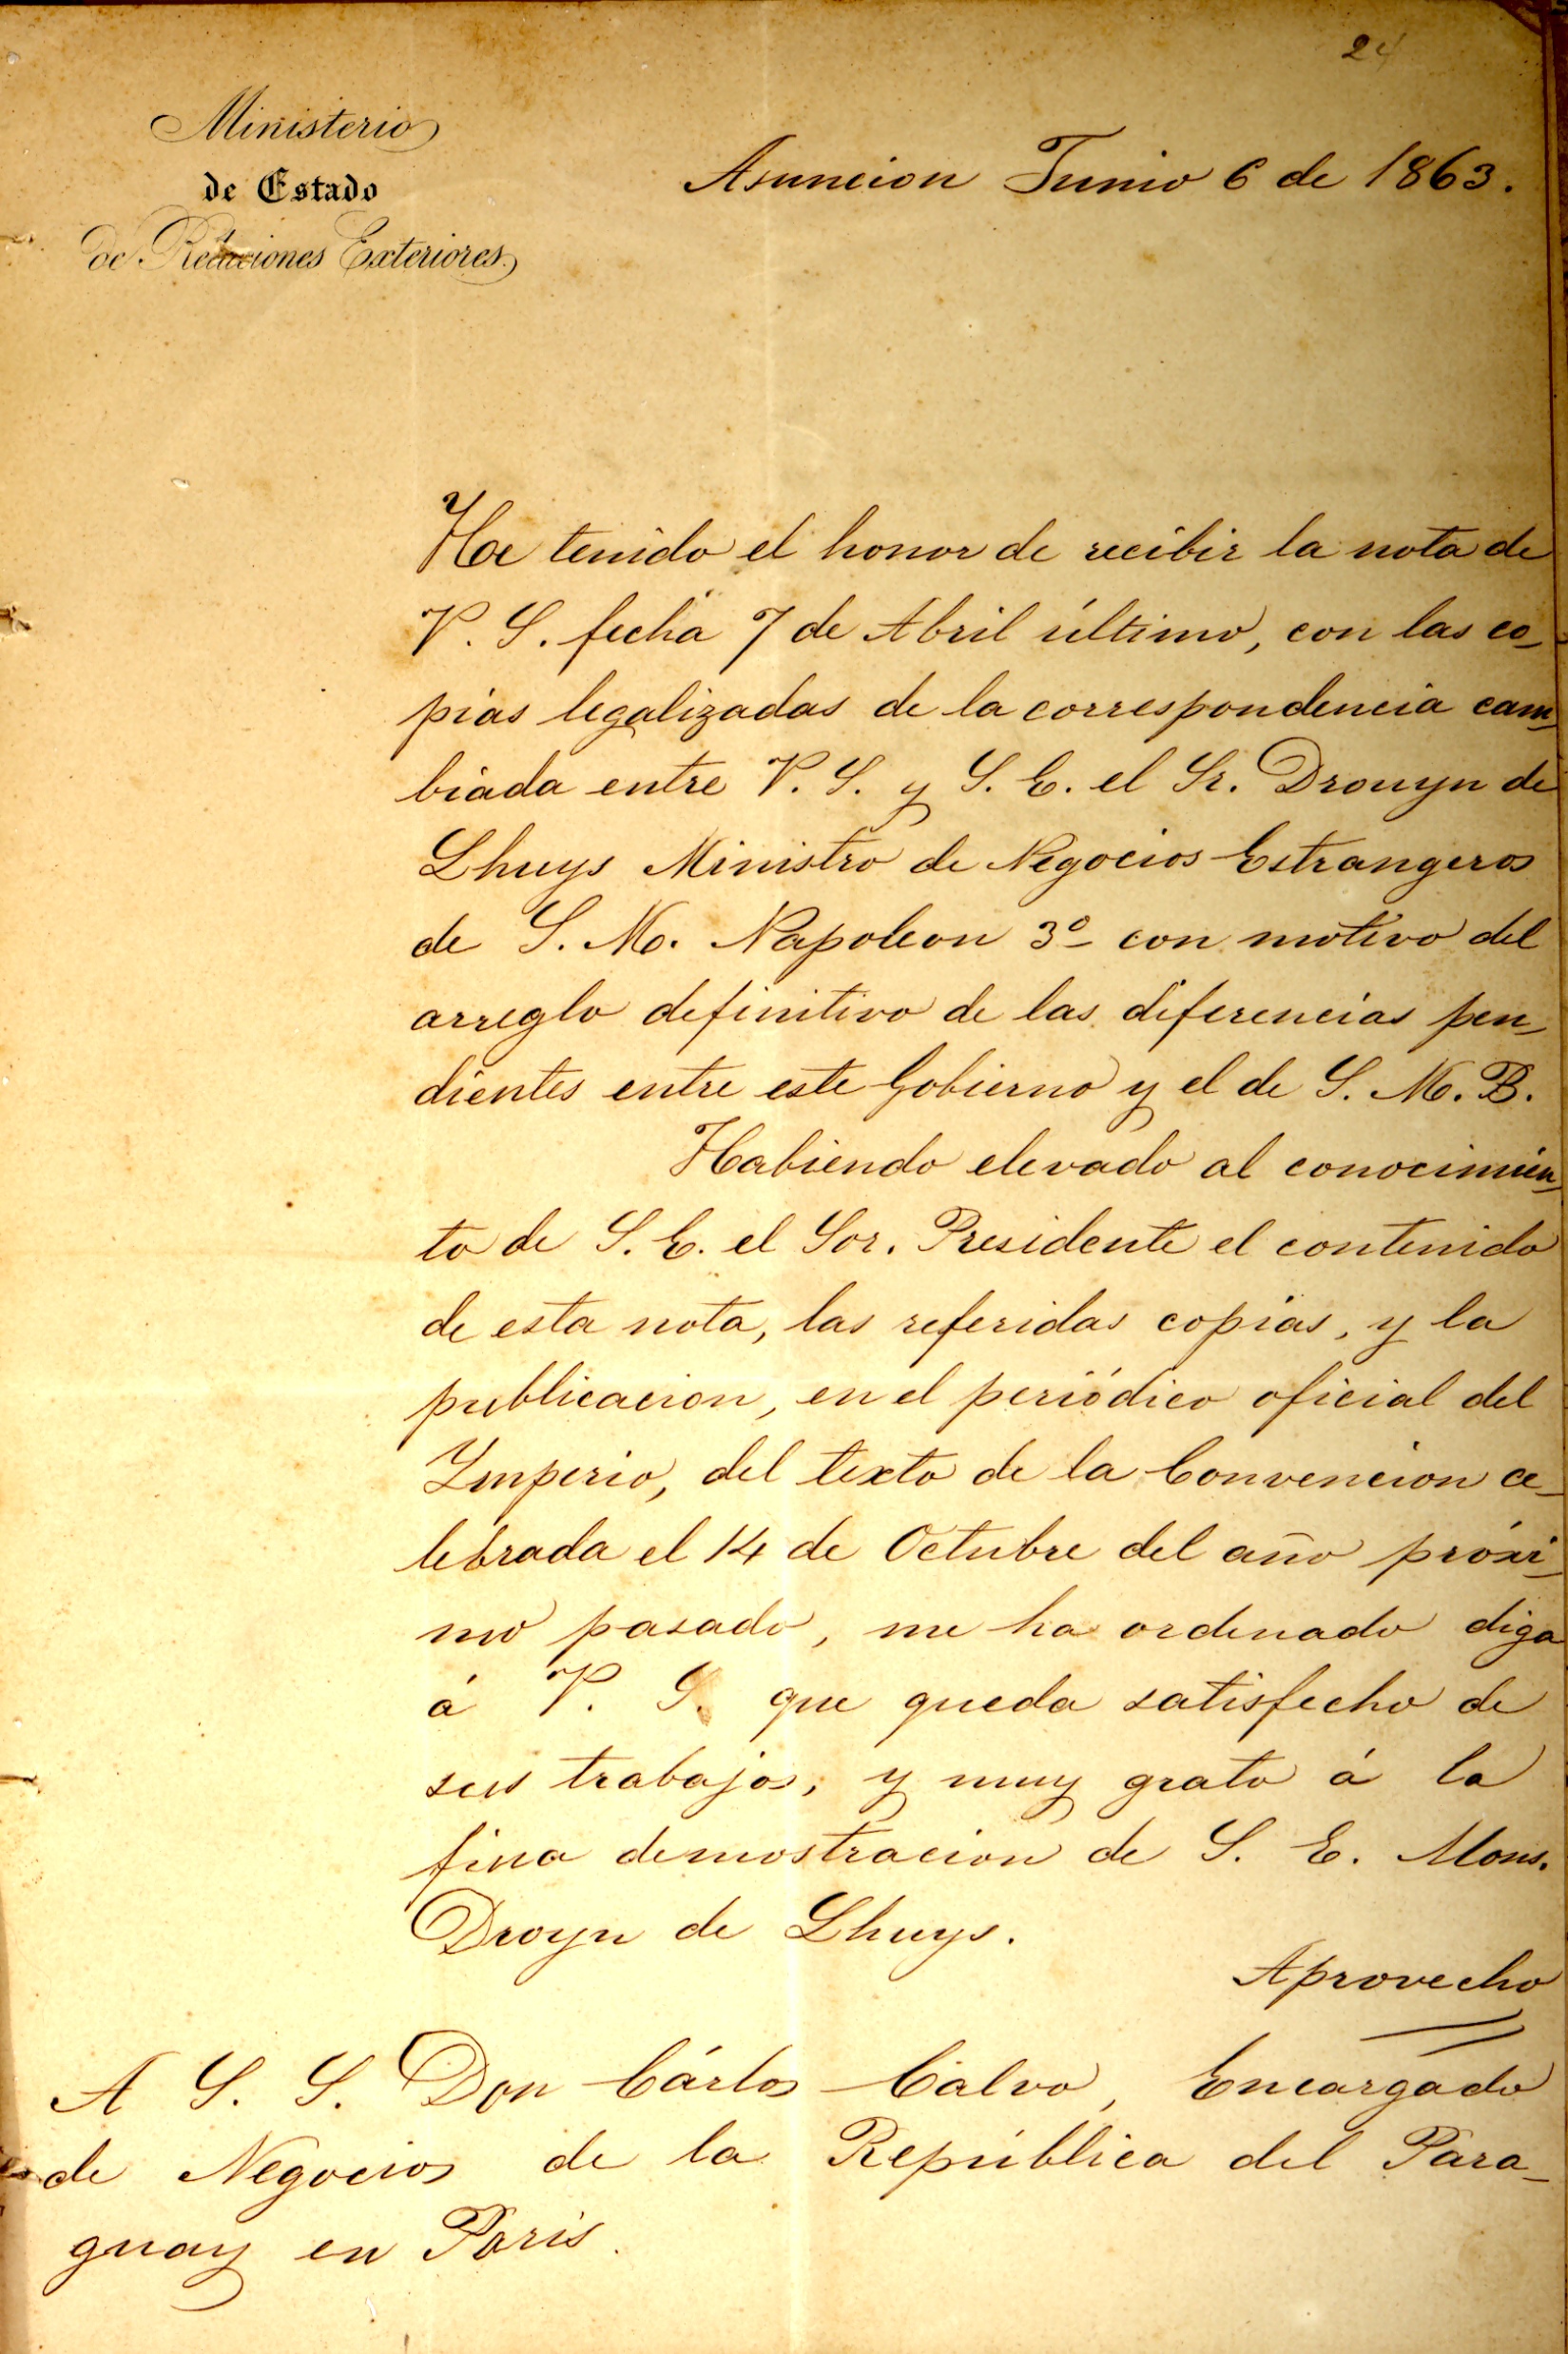 24
Ministerio
de Estado
de Relaciones Exteriores.
Asuncion Junio 6 de 1863.
He tenido el honor de recibir la nota de
V. S. fecha 7 de Abril último, con las co-
pias legalizadas de la correspondencia cam-
biada entre V. S. y S. E. el Sr. Drouyn de
Lhuys Ministro de Negocios Estrangeros
de S. M. Napoleon 3º con motivo del
arreglo definitivo de las diferencias pen-
dientes entre este Gobierno y el de S. M. B.
Habiendo elevado al conocimien-
to de S. E. el Sor. Presidente el contenido
de esta nota, las referidas copias, y la
publicacion, en el periódico oficial del
Imperio, del texto de la Convencion ce-
lebrada el 14 de Octubre del año próxi-
mo pasado, me ha ordenado diga
á V. S. que queda satisfecho de
sus trabajos, y muy grato á la
fina demostracion de S. E. Mons.
Droyn de Lhuys.
Aprovecho
A S. S. Don Cárlos Calvo, Encargado
de Negocios de la República del Para-
guay en Paris.